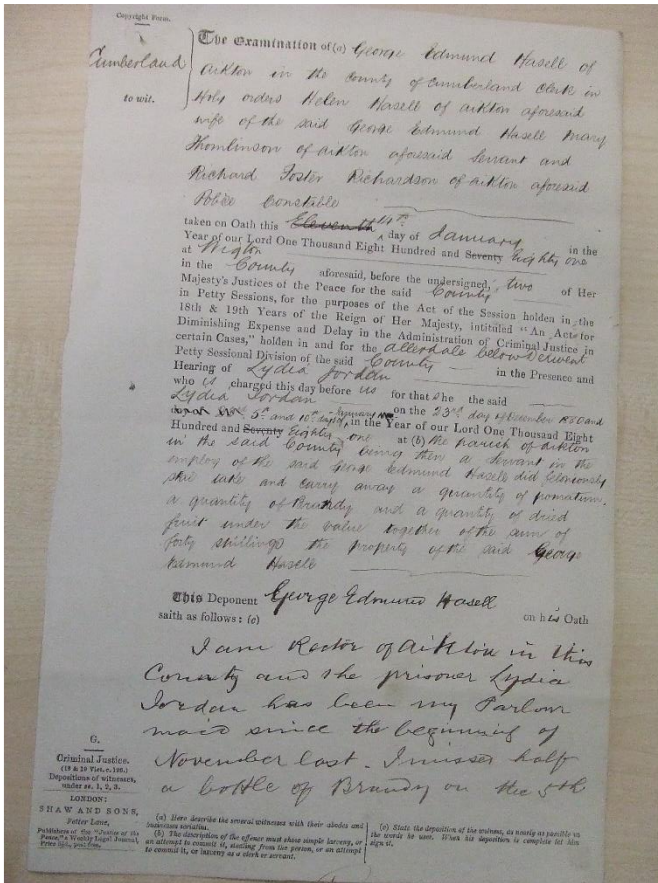 Copyright Form.
Cumberland
to wit.
The Examination of (a) George Edmund Hasell of
Aikton in the County of Cumberland Clerk in
Holy orders Helen Hasell of aikton aforesaid
wife of the said George Edmund Hasell Mary
Thomlinson of aikton aforesaid Servant and
Richard Foster Richardson of aikton aforesaid
Police Constable
taken on Oath this Eleventh 14th day of January in the
Year of our Lord One Thousand Eight Hundred and Seventy Eighty one
at Wigton
in the County aforesaid, before the undersigned, two of Her
Majesty's Justices of the Peace for the said County
in Petty Sessions, for the purposes of the Act of the Session holden in the
18th & 19th Years of the Reign of Her Majesty, intituled "An Act for
Diminishing Expense and Delay in the Administration of Criminal Justice in
certain Cases," holden in and for the allerdale below Derwent
Petty Sessional Division of the said County in the Presence and
Hearing of Lydia Jordan
who is charged this day before us for that she the said
Lydia Jordan on the 23rd day of December 1880 and
5th and 10th days of January in the Year of our Lord One Thousand Eight
Hundred and Seventy Eighty one at (b) the parish of aikton
in the said County being then a Servant in the
employ of the said George Edmund Hasell did feloniously
steal take and carry away a quantity of pomatum
a quantity of Brandy and a quantity of dried
fruit under the value together of the sum of
forty shillings the property of the said George
Edmund Hasell
This Deponent George Edmund Hasell on his Oath
saith as follows: (c)
I am Rector of Aikton in this
County and the prisoner Lydia
Jordan has been my Parlour
maid since the beginning of
November last. I missed half
a bottle of Brandy on the 5th
G.
Criminal Justice.
(18 & 19 Vict. c. 126.)
Depositions of witnesses,
under ss. 1, 2, 3.
LONDON:
SHAW AND SONS,
Fetter Lane,
Publishers of the "Justice of the
Peace," a Weekly Legal Journal,
Price 6½d., post free.
(a) Here describe the several witnesses with their abodes and
businesses seriatim.
(b) The description of the offence must show simple larceny, or
an attempt to commit it, stealing from the person, or an attempt
to commit it, or larceny as a clerk or servant.
(c) State the deposition of the witness, as nearly as possible in
the words he uses. When his deposition is complete let him
sign it.